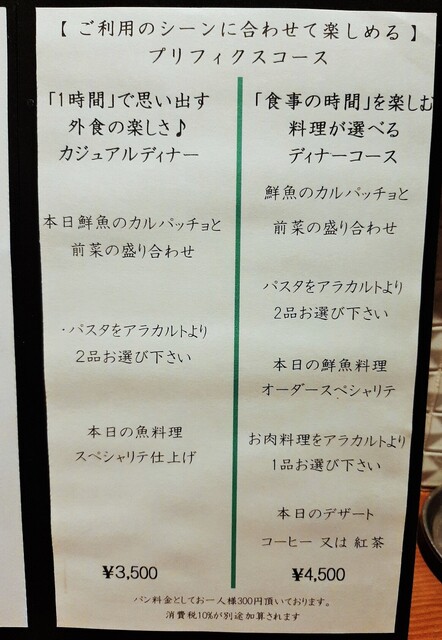 【 ご利用のシーンに合わせて楽しめる 】
プリフィクスコース
「1時間」で思い出す
外食の楽しさ♪
カジュアルディナー
本日鮮魚のカルパッチョと
前菜の盛り合わせ
・パスタをアラカルトより
2品お選び下さい
本日の魚料理
スペシャリテ仕上げ
¥3,500
「食事の時間」を楽しむ
料理が選べる
ディナーコース
鮮魚のカルパッチョと
前菜の盛り合わせ
パスタをアラカルトより
2品お選び下さい
本日の鮮魚料理
オーダースペシャリテ
お肉料理をアラカルトより
1品お選び下さい
本日のデザート
コーヒー 又は 紅茶
¥4,500
パン料金としてお一人様300円頂いております。
消費税10%が別途加算されます